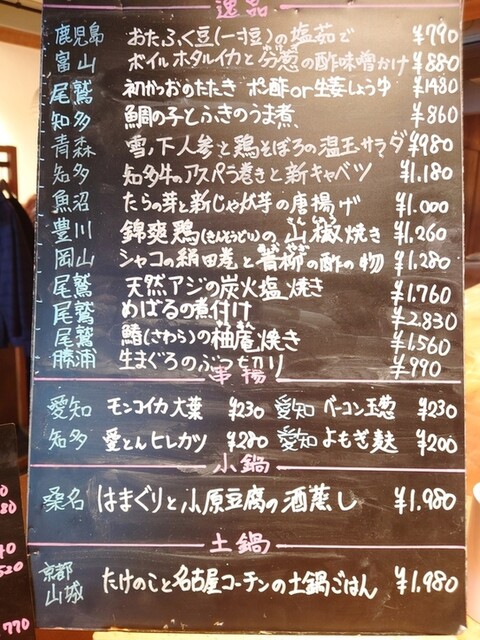 逸品
鹿児島 おたふく豆(一寸豆)の塩茹で ¥790
富山 ボイルホタルイカと分葱の酢味噌かけ ¥880
尾鷲 初かつおのたたき ポン酢or生姜しょうゆ ¥1480
知多 鯛の子とふきのうま煮、 ¥860
青森 雪ノ下人参と鶏そぼろの温玉サラダ ¥980
知多 知多牛のアスパラ巻きと新キャベツ ¥1.180
魚沼 たらの芽と新じゃが芋の唐揚げ ¥1.000
豊川 錦爽鶏(きんそうどり)の山椒焼き ¥1.260
岡山 シャコの絹田煮と青柳の酢の物 ¥1.280
尾鷲 天然アジの炭火塩焼き ¥1.760
尾鷲 めばるの煮付け ¥2.830
尾鷲 鰆(さわら)の柚庵焼き ¥1.560
勝浦 生まぐろのぶつ切り ¥990
串揚
愛知 モンコイカ大葉 ¥230 愛知 ベーコン玉葱 ¥230
知多 愛とんヒレカツ ¥280 愛知 よもぎ麩 ¥200
小鍋
桑名 はまぐりと小原豆腐の酒蒸し ¥1.980
土鍋
京都山城 たけのこと名古屋コーチンの土鍋ごはん ¥1.980
770